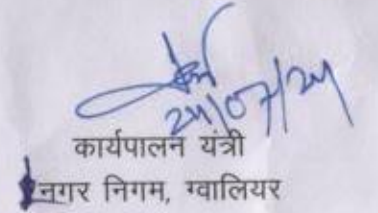 24/07/24
कार्यपालन यंत्री
नगर निगम, ग्वालियर